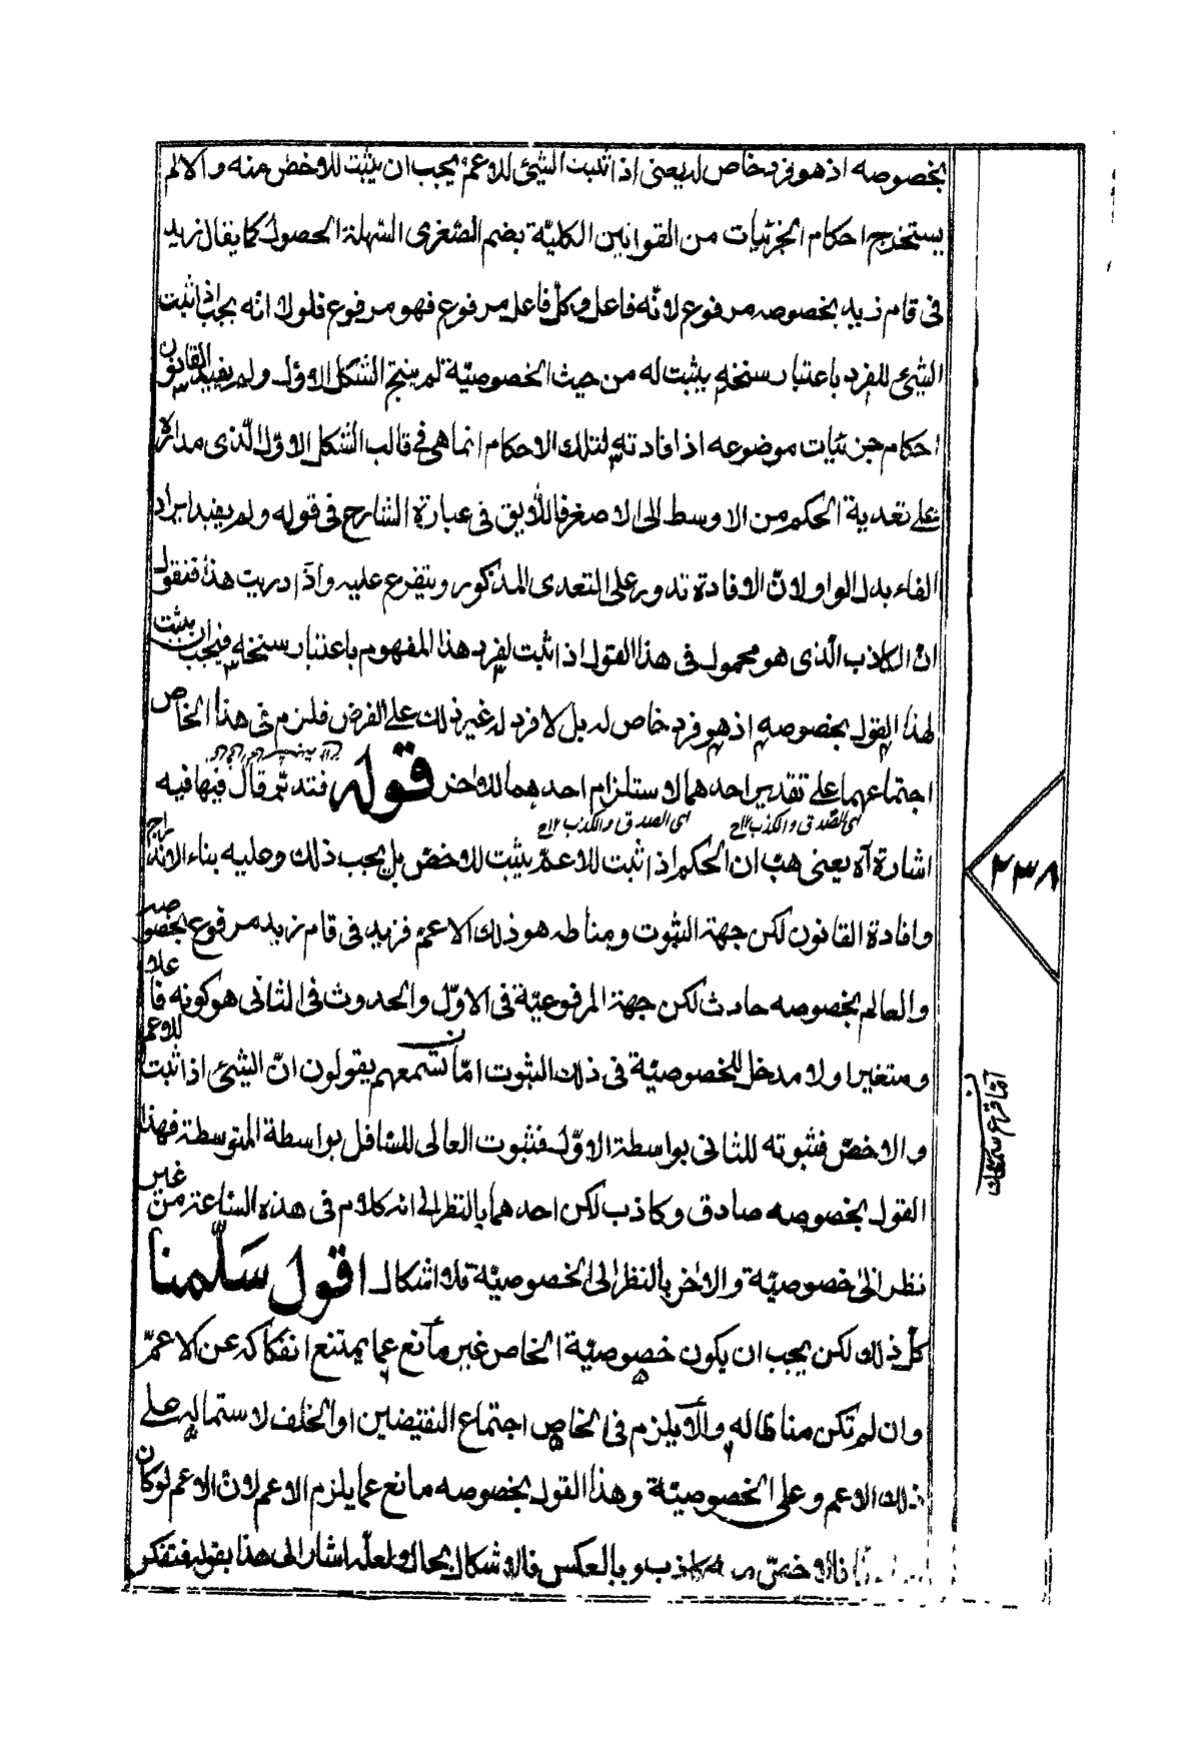 بخصوصه اذ هو فرد خاص له يعنى اذا ثبت الشيئ للاعم يجب ان يثبت للاخص منه والا لم
يستخرج احكام الجزئيات من القوانين الكلية بضم الصغرى السهلة الحصول كما يقال زيد
فى قام زيد بخصوصه مرفوع لانه فاعل وكل فاعل مرفوع فهو مرفوع فلولا انه يجب اذا ثبت
الشيئ للفرد باعتبار سنخه يثبت له من حيث الخصوصية لم ينتج الشكل الاول ولم يفيد القانون
احكام جزئيات موضوعه اذ افادته لتلك الاحكام انما هى فى قالب الشكل الاول الذى مداره
على تعدية الحكم من الاوسط الى الاصغر فالاليق فى عبارة الشارح فى قوله ولم يفيد ايراد
الفاء بدل الواو لان الافادة تدور على التعدى المذكور ويتفرع عليه واذا دريت هذا فنقول
ان الكاذب الذى هو محمول فى هذا القول اذا ثبت لفرد هذا المفهوم باعتبار سنخه فيجب ان يثبت
لهذا القول بخصوصه اذ هو فرد خاص له بل لا فرد له غير ذلك على الفرض فلزم فى هذا الخاص
اجتماعهما على تقدير احدهما لاستلزام احدهما للاخر قوله فتدثم قال فيها فيه
اى الصدق والكذب ١٢ اى الصدق والكذب ١٢
اشارة آه يعنى هب ان الحكم اذا ثبت للاعم يثبت للاخص بل يجب ذلك وعليه بناء الاندراج
وافادة القانون لكن جهة الثبوت ومناطه هو ذلك الاعم فزيد فى قام زيد مرفوع بخصوصه
والعالم بخصوصه حادث لكن جهة المرفوعية فى الاول والحدوث فى الثانى هو كونه فاعلا
ومتغيرا ولا مدخل للخصوصية فى ذلك الثبوت اما تسمعهم يقولون ان الشيئ اذا ثبت للاعم
والاخص فثبوته للثانى بواسطة الاول فثبوت العالى للسافل بواسطة المتوسطة فهذا
القول بخصوصه صادق وكاذب لكن احدهما بالنظر الى انه كلام فى هذه الساعة من غير
نظر الى خصوصية والاخر بالنظر الى الخصوصية فلا اشكال اقول سلمنا
كل ذلك لكن يجب ان يكون خصوصية الخاص غير مانع عما يمتنع انفكاكه عن الاعم
وان لم تكن مناطا له والا يلزم فى الخاص اجتماع النقيضين او الخلف لاستماليه على
ذلك الاعم وعلى الخصوصية وهذا القول بخصوصه مانع عما يلزم الاعم لان الاعم لو كان
فالاخص كاذب وبالعكس فالاشكال بحاله ولعله اشار الى هذا بقوله فتفكر
٢٣٨